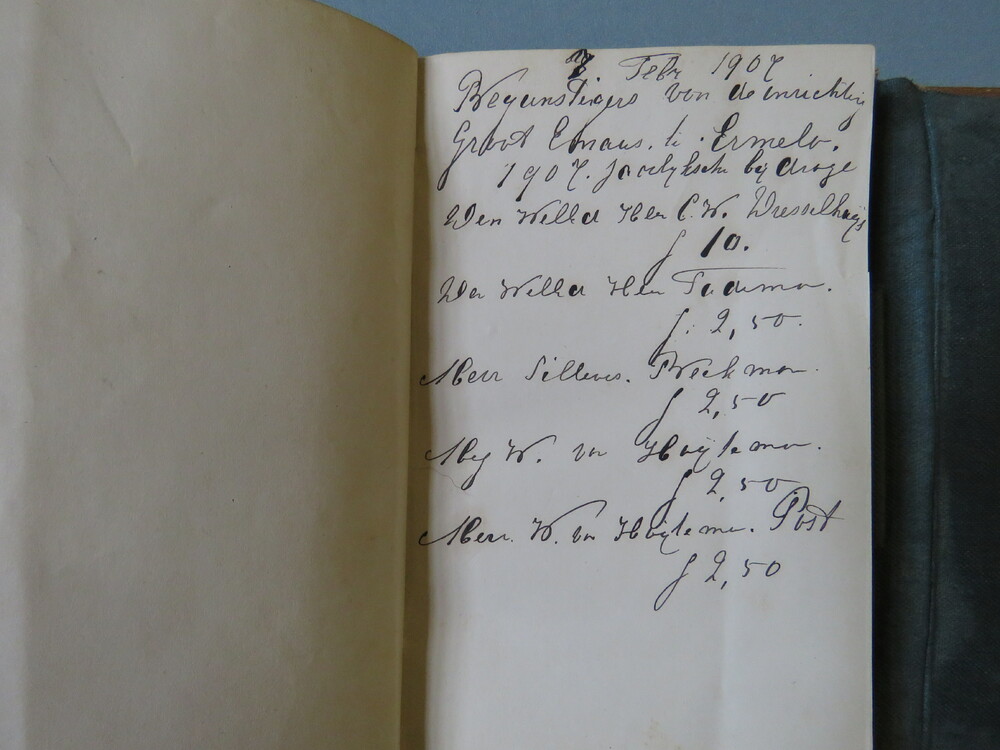 7. Febr 1907
Begunstigers van de inrichting
Groot Emaus. te. Ermelo.
1907. Jaarlyksche bijdrage
Den Weled Heer C. W. Wesselhuys
f 10.
Den Weled Heer Tadema.
f. 2,50.
Mevr Sillevis. Beekman.
f 2,50
Mej W. van Hoijtema.
f 2,50
Mevr. W. van Hoijtema. Post
f 2,50